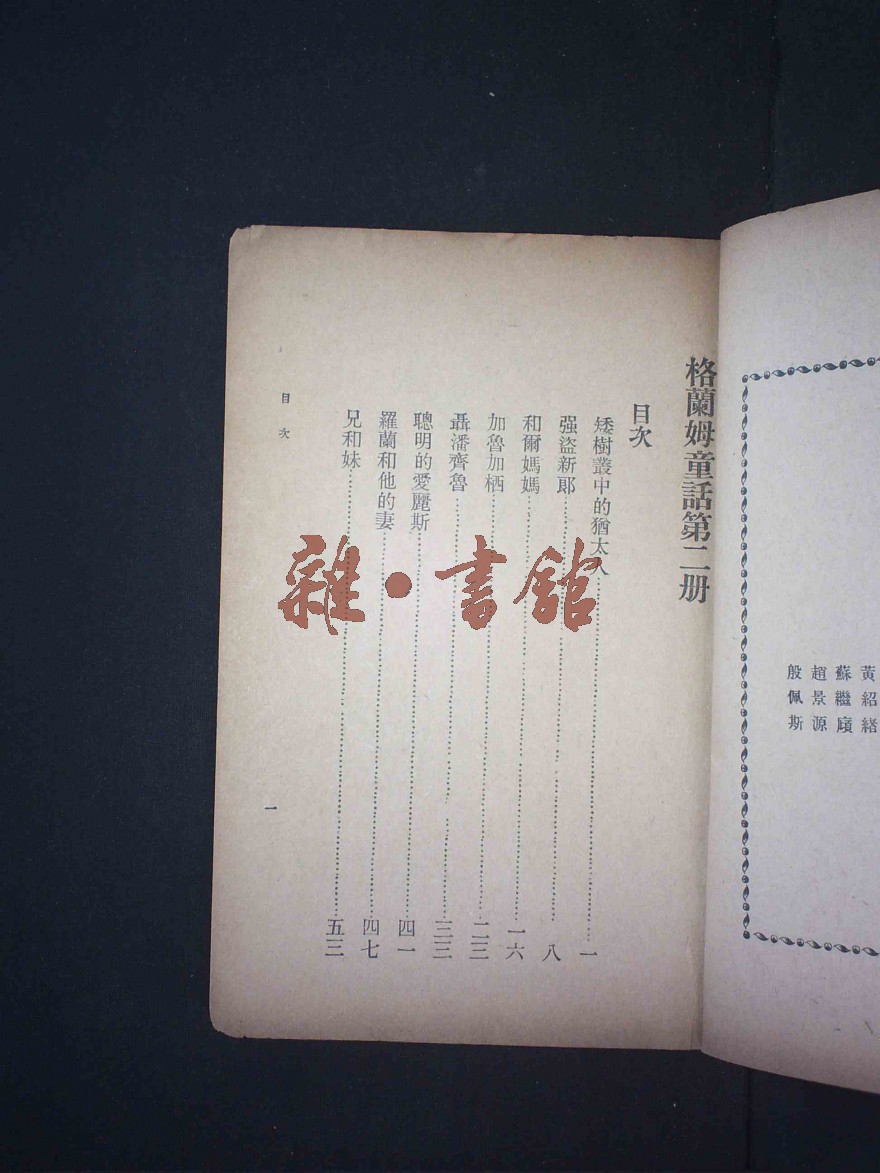 黃紹緒
蘇繼廎
趙景源
殷佩斯
格蘭姆童話第二册
目次
矮樹叢中的猶太人……一
强盜新郞……八
和爾媽媽……一六
加魯加栖……二三
聶潘齊魯……三三
聰明的愛麗斯……四一
羅蘭和他的妻……四七
兄和妹……五三
目次
一
雜·書館